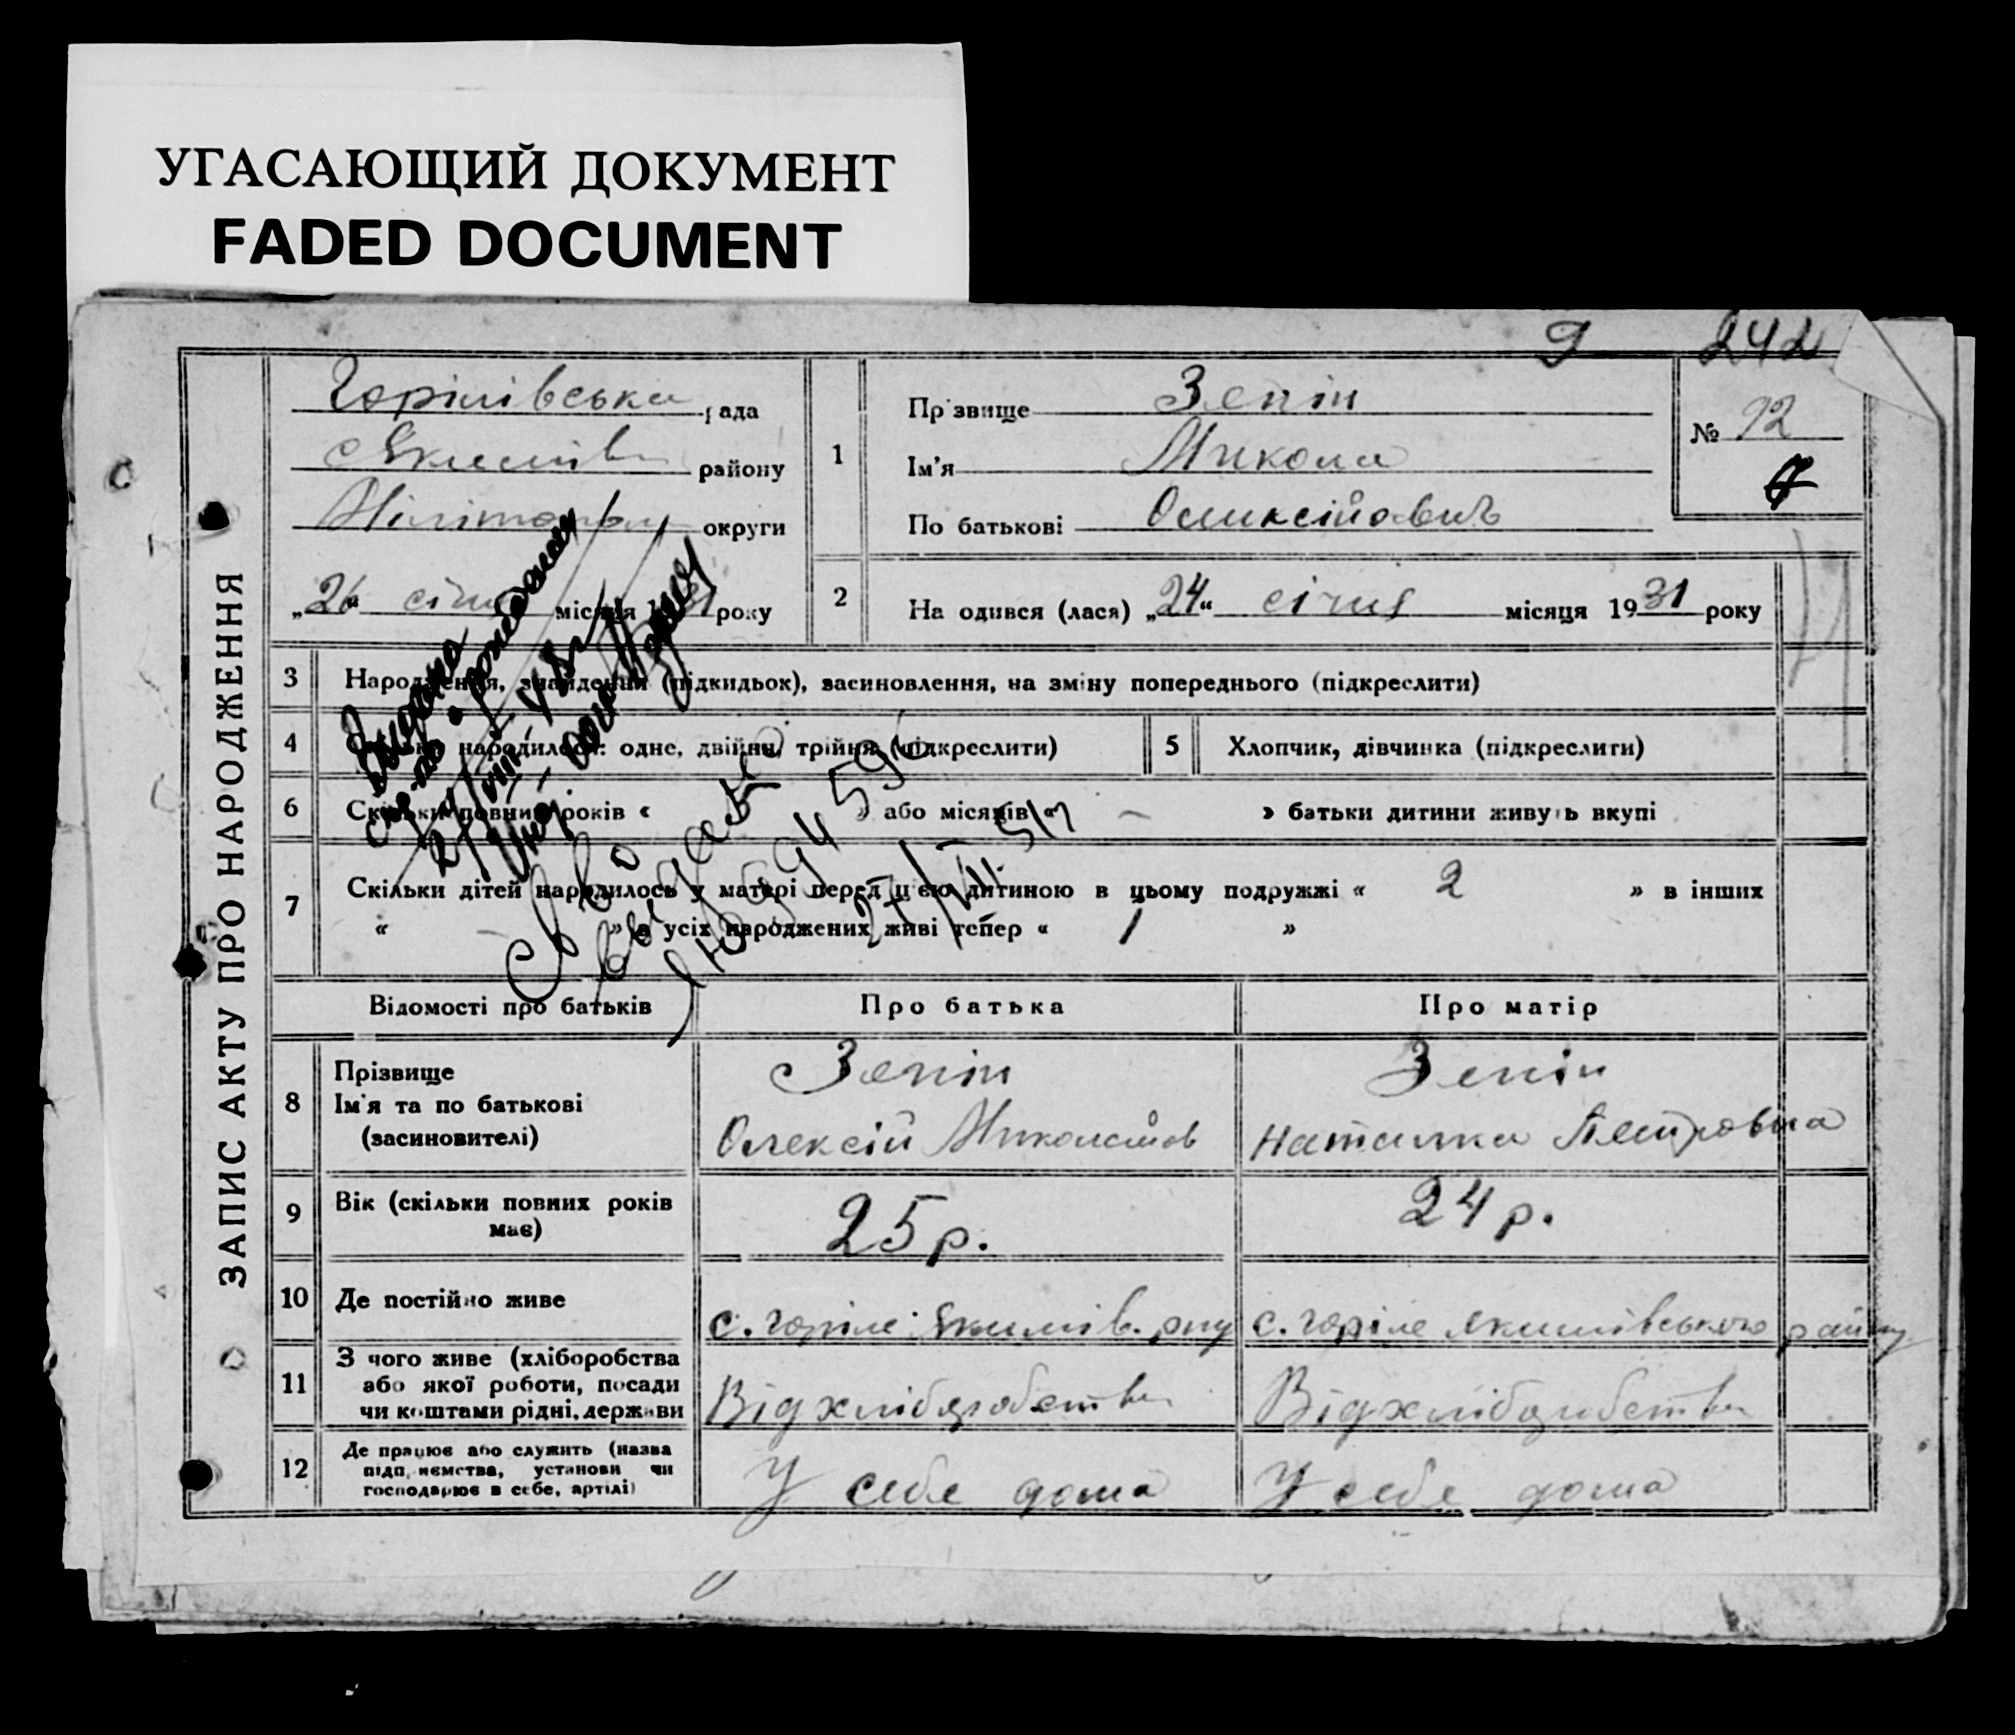 УГАСАЮЩИЙ ДОКУМЕНТ
FADED DOCUMENT
9 242
ЗАПИС АКТУ ПРО НАРОДЖЕННЯ
Горілівська рада
району
округи
„26“ січня місяця 1931 року
1
Прізвище Зенін
Ім'я Микола
По батькові Оликсійович
№ 12
2
На одився (лася) „24“ січня місяця 1931 року
3 Народження, знайдений (підкидьок), засиновлення, на зміну попереднього (підкреслити)
4 народилося: одне, двійня, трійня (підкреслити)
5 Хлопчик, дівчинка (підкреслити)
6 Скільки повних років « » або місяців « – » батьки дитини живуть вкупі
7 Скільки дітей народилось у матері перед цією дитиною в цьому подружжі « 2 » в інших
« – » з усіх народжених живі тепер « 1 »
Видано
Св-во о рождении
Св-во
видано
Відомості про батьків Про батька Про матір
8 Прізвище
Ім'я та по батькові
(засиновителі)
Зенін
Олексій Миколайов
Зенін
Наталка Петровна
9 Вік (скільки повних років
має)
25 р.
24 р.
10 Де постійно живе
с. Горіле Якимів. р-ну
с. Горіле Якимівського району
11 З чого живе (хліборобства
або якої роботи, посади
чи коштами рідні, держави
Від хліборобства
Від хліборобства
12 Де працює або служить (назва
підприємства, установи чи
господарює в себе, артілі)
У себе дома
У себе дома